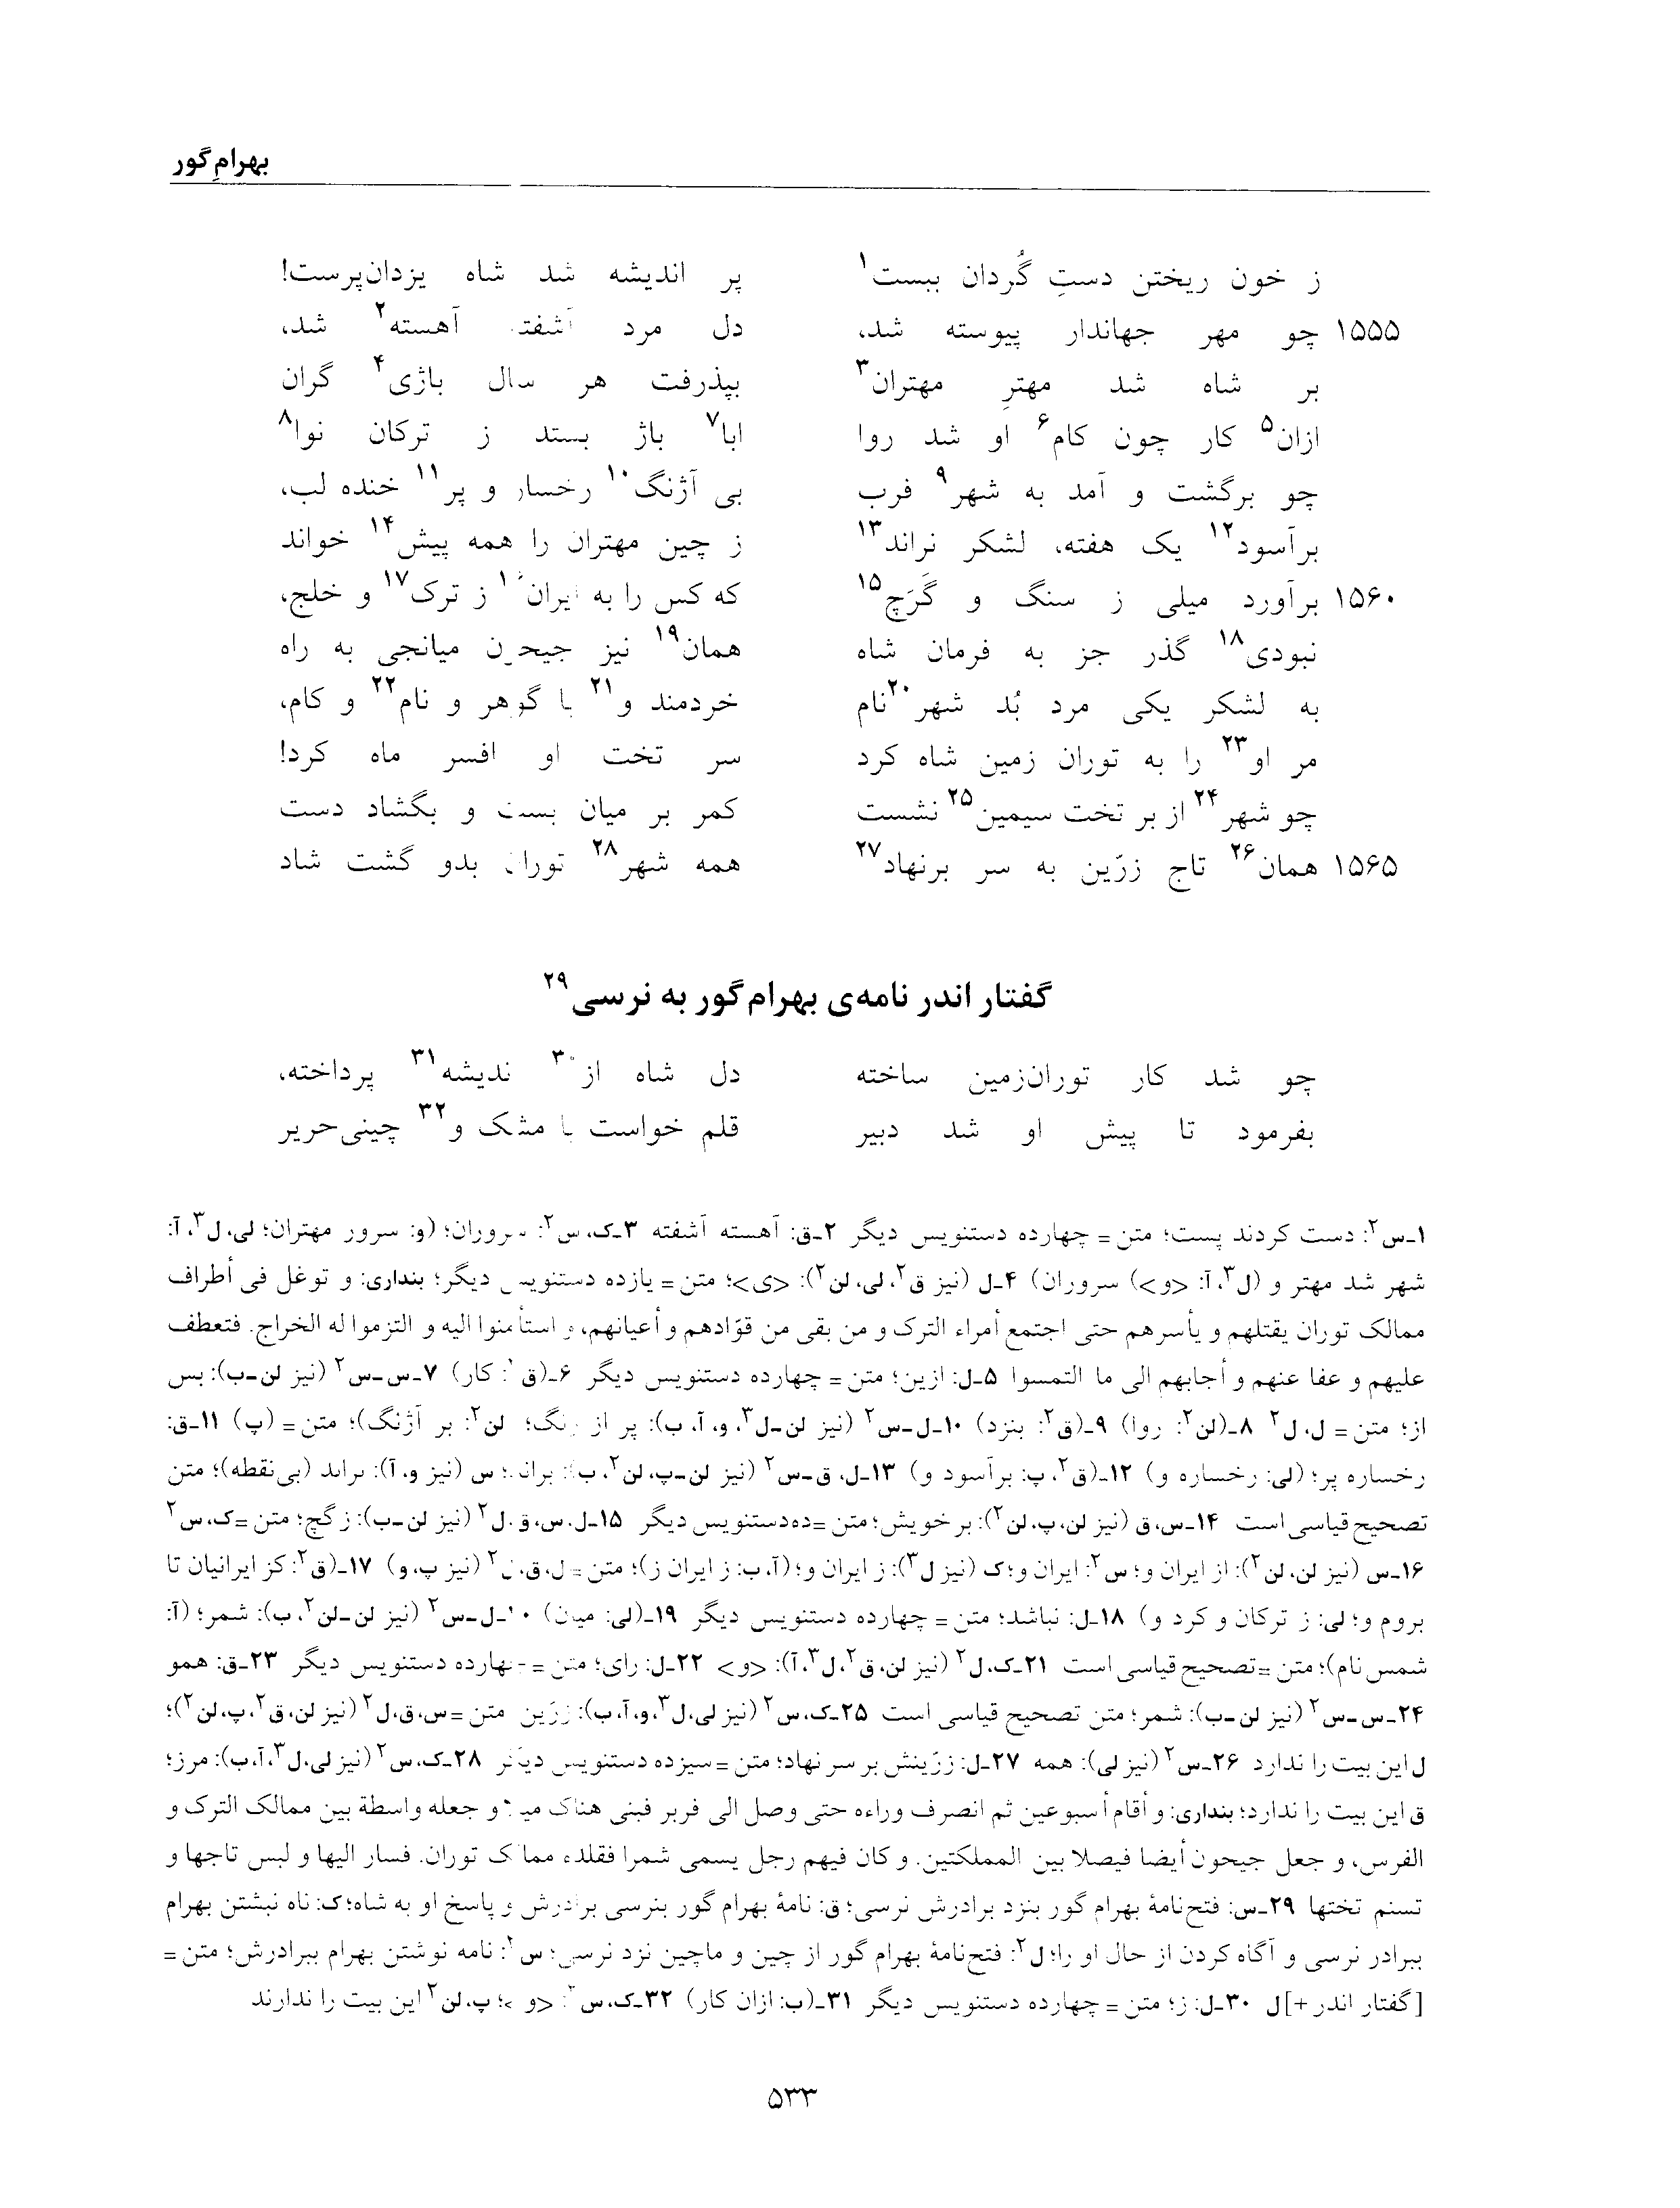 بهرامِ گور
ز خون ریختن دستِ گُردان ببست۱ پر اندیشه شد شاه یزدان‌پرست!
۱۵۵۵ چو مهر جهاندار پیوسته شد، دل مرد آشفته آهسته۲ شد،
بر شاه شد مهترِ مهتران۳ بپذرفت هر سال باژی۴ گران
ازان۵ کار چون کام۶ او شد روا ابا۷ باژ بستد ز ترکان نوا۸
چو برگشت و آمد به شهر۹ فرب بی آژنگ۱۰ رخسار و پر۱۱ خنده لب،
برآسود۱۲ یک هفته، لشکر نراند۱۳ ز چین مهتران را همه پیش۱۴ خواند
۱۵۶۰ برآورد میلی ز سنگ و گَرَچ۱۵ که کس را به ایران ز ترک۱۷ و خلج،
نبودی۱۸ گذر جز به فرمان شاه همان۱۹ نیز جیحون میانجی به راه
به لشکر یکی مرد بُد شهر۲۰ نام خردمند و۲۱ با گوهر و نام۲۲ و کام،
مر او۲۳ را به توران زمین شاه کرد سر تخت او افسر ماه کرد!
چو شهر۲۴ از بر تخت سیمین۲۵ نشست کمر بر میان بست و بگشاد دست
۱۵۶۵ همان۲۶ تاج زرّین به سر برنهاد۲۷ همه شهر۲۸ توران بدو گشت شاد
گفتار اندر نامه‌ی بهرام گور به نرسی۲۹
چو شد کار توران‌زمین ساخته دل شاه از۳۰ اندیشه۳۱ پرداخته،
بفرمود تا پیش او شد دبیر قلم خواست با مشک و۳۲ چینی‌حریر
۱ـس۲: دست کردند پست؛ متن = چهارده دستنویس دیگر ۲ـق: آهسته آشفته ۳ـک، س۲: سروران؛ (و: سرور مهتران؛ لی، ل۳، آ:
شهر شد مهتر و (ل۳، آ: <و>) سروران) ۴ـل (نیز ق۲، لی، لن۲): <ی>؛ متن = یازده دستنویس دیگر؛ بنداری: و توغل فی أطراف
ممالک توران یقتلهم و یأسرهم حتی اجتمع أمراء الترک و من بقی من قوّادهم و أعیانهم، و استأمنوا الیه و التزموا له الخراج. فتعطف
علیهم و عفا عنهم و أجابهم الی ما التمسوا ۵ـل: ازین؛ متن = چهارده دستنویس دیگر ۶ـ(ق۲: کار) ۷ـس‌ـس۲ (نیز لن‌ـب): بس
از؛ متن = ل، ل۲ ۸ـ(لن۲: روا) ۹ـ(ق۲: بنزد) ۱۰ـل‌ـس۲ (نیز لن‌ـل۳، و، آ، ب): پر از رنگ؛ لن۲: بر آژنگ)؛ متن = (پ) ۱۱ـق:
رخساره پر؛ (لی: رخساره و) ۱۲ـ(ق۲، پ: برآسود و) ۱۳ـل، ق‌ـس۲ (نیز لن‌ـپ، لن۲، ب): براند؛ س (نیز و، آ): براند (بی‌نقطه)؛ متن
تصحیح قیاسی است ۱۴ـس، ق (نیز لن، پ، لن۲): بر خویش؛ متن = ده دستنویس دیگر ۱۵ـل، س، ق، ل۲ (نیز لن‌ـب): ز گچ؛ متن = ک، س۲
۱۶ـس (نیز لن، لن۲): از ایران و؛ س۲: ایران و؛ ک (نیز ل۳): ز ایران و؛ (آ، ب: ز ایران ز)؛ متن = ل، ق، ل۲ (نیز پ، و) ۱۷ـ(ق۲: کز ایرانیان تا
بروم و؛ لی: ز ترکان و کرد و) ۱۸ـل: نباشد؛ متن = چهارده دستنویس دیگر ۱۹ـ(لی: میان) ۲۰ـل‌ـس۲ (نیز لن‌ـلن۲، ب): شمر؛ (آ:
شمس نام)؛ متن = تصحیح قیاسی است ۲۱ـک، ل۲ (نیز لن، ق۲، ل۳، آ): <و> ۲۲ـل: رای؛ متن = چهارده دستنویس دیگر ۲۳ـق: همو
۲۴ـس‌ـس۲ (نیز لن‌ـب): شمر؛ متن تصحیح قیاسی است ۲۵ـک، س۲ (نیز لی، ل۳، و، آ، ب): زرّین متن = س، ق، ل۲ (نیز لن، ق۲، پ، لن۲)؛
ل این بیت را ندارد ۲۶ـس۲ (نیز لی): همه ۲۷ـل: زرّینش بر سر نهاد؛ متن = سیزده دستنویس دیگر ۲۸ـک، س۲ (نیز لی، ل۳، آ، ب): مرز؛
ق این بیت را ندارد؛ بنداری: و أقام أسبوعین ثم انصرف وراءه حتی وصل الی فربر فبنی هناک میلا و جعله واسطة بین ممالک الترک و
الفرس، و جعل جیحون أیضا فیصلا بین المملکتین. و کان فیهم رجل یسمی شمرا فقلده ممالک توران. فسار الیها و لبس تاجها و
تسنم تختها ۲۹ـس: فتح‌نامهٔ بهرام گور بنزد برادرش نرسی؛ ق: نامهٔ بهرام گور بنرسی برادرش و پاسخ او به شاه؛ ک: ناه نبشتن بهرام
ببرادر نرسی و آگاه کردن از حال او را؛ ل۲: فتح‌نامهٔ بهرام گور از چین و ماچین نزد نرسی؛ س۲: نامه نوشتن بهرام ببرادرش؛ متن =
[گفتار اندر +] ل ۳۰ـل: ز؛ متن = چهارده دستنویس دیگر ۳۱ـ(ب: ازان کار) ۳۲ـک، س۲: <و>؛ پ، لن۲ این بیت را ندارند
۵۳۳